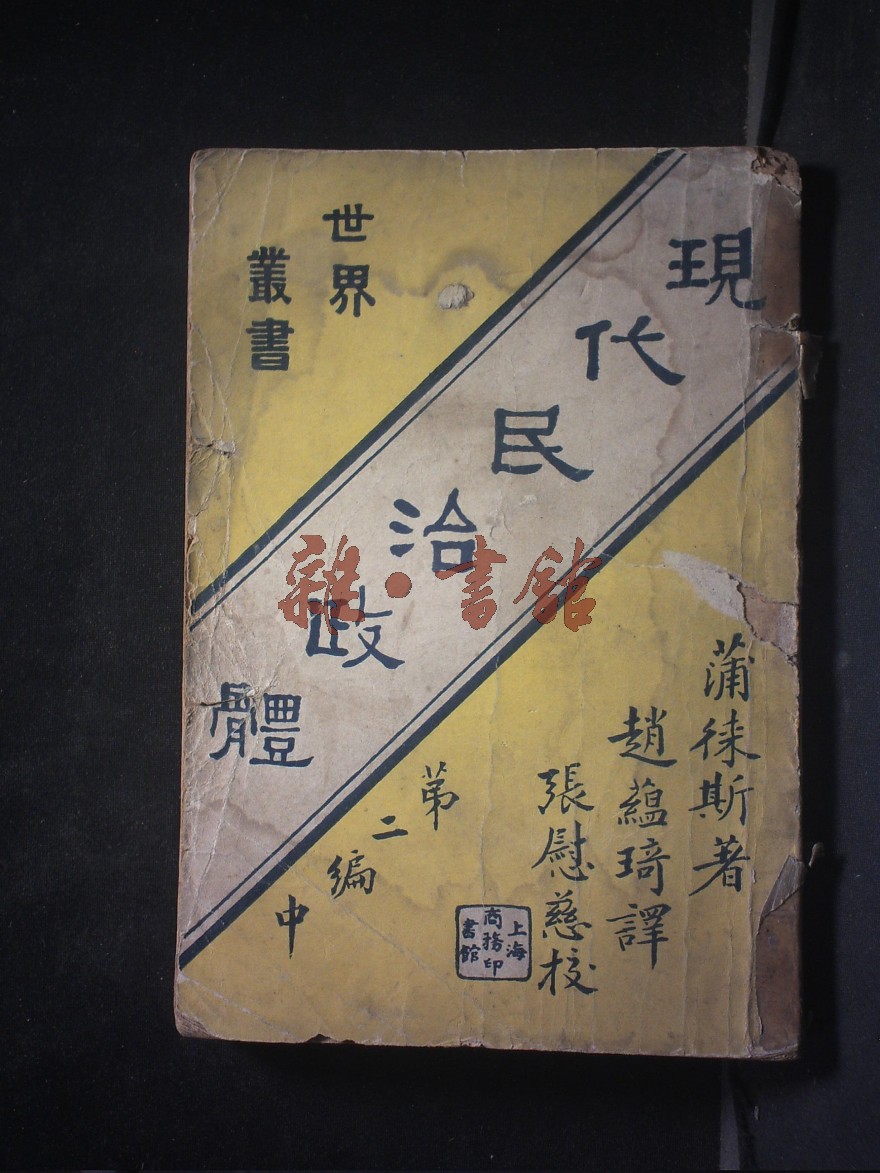 世界
叢書
現代民治政體
第二編中
蒲徠斯著
趙蘊琦譯
張慰慈校
上海
商務印
書館
雜·書館